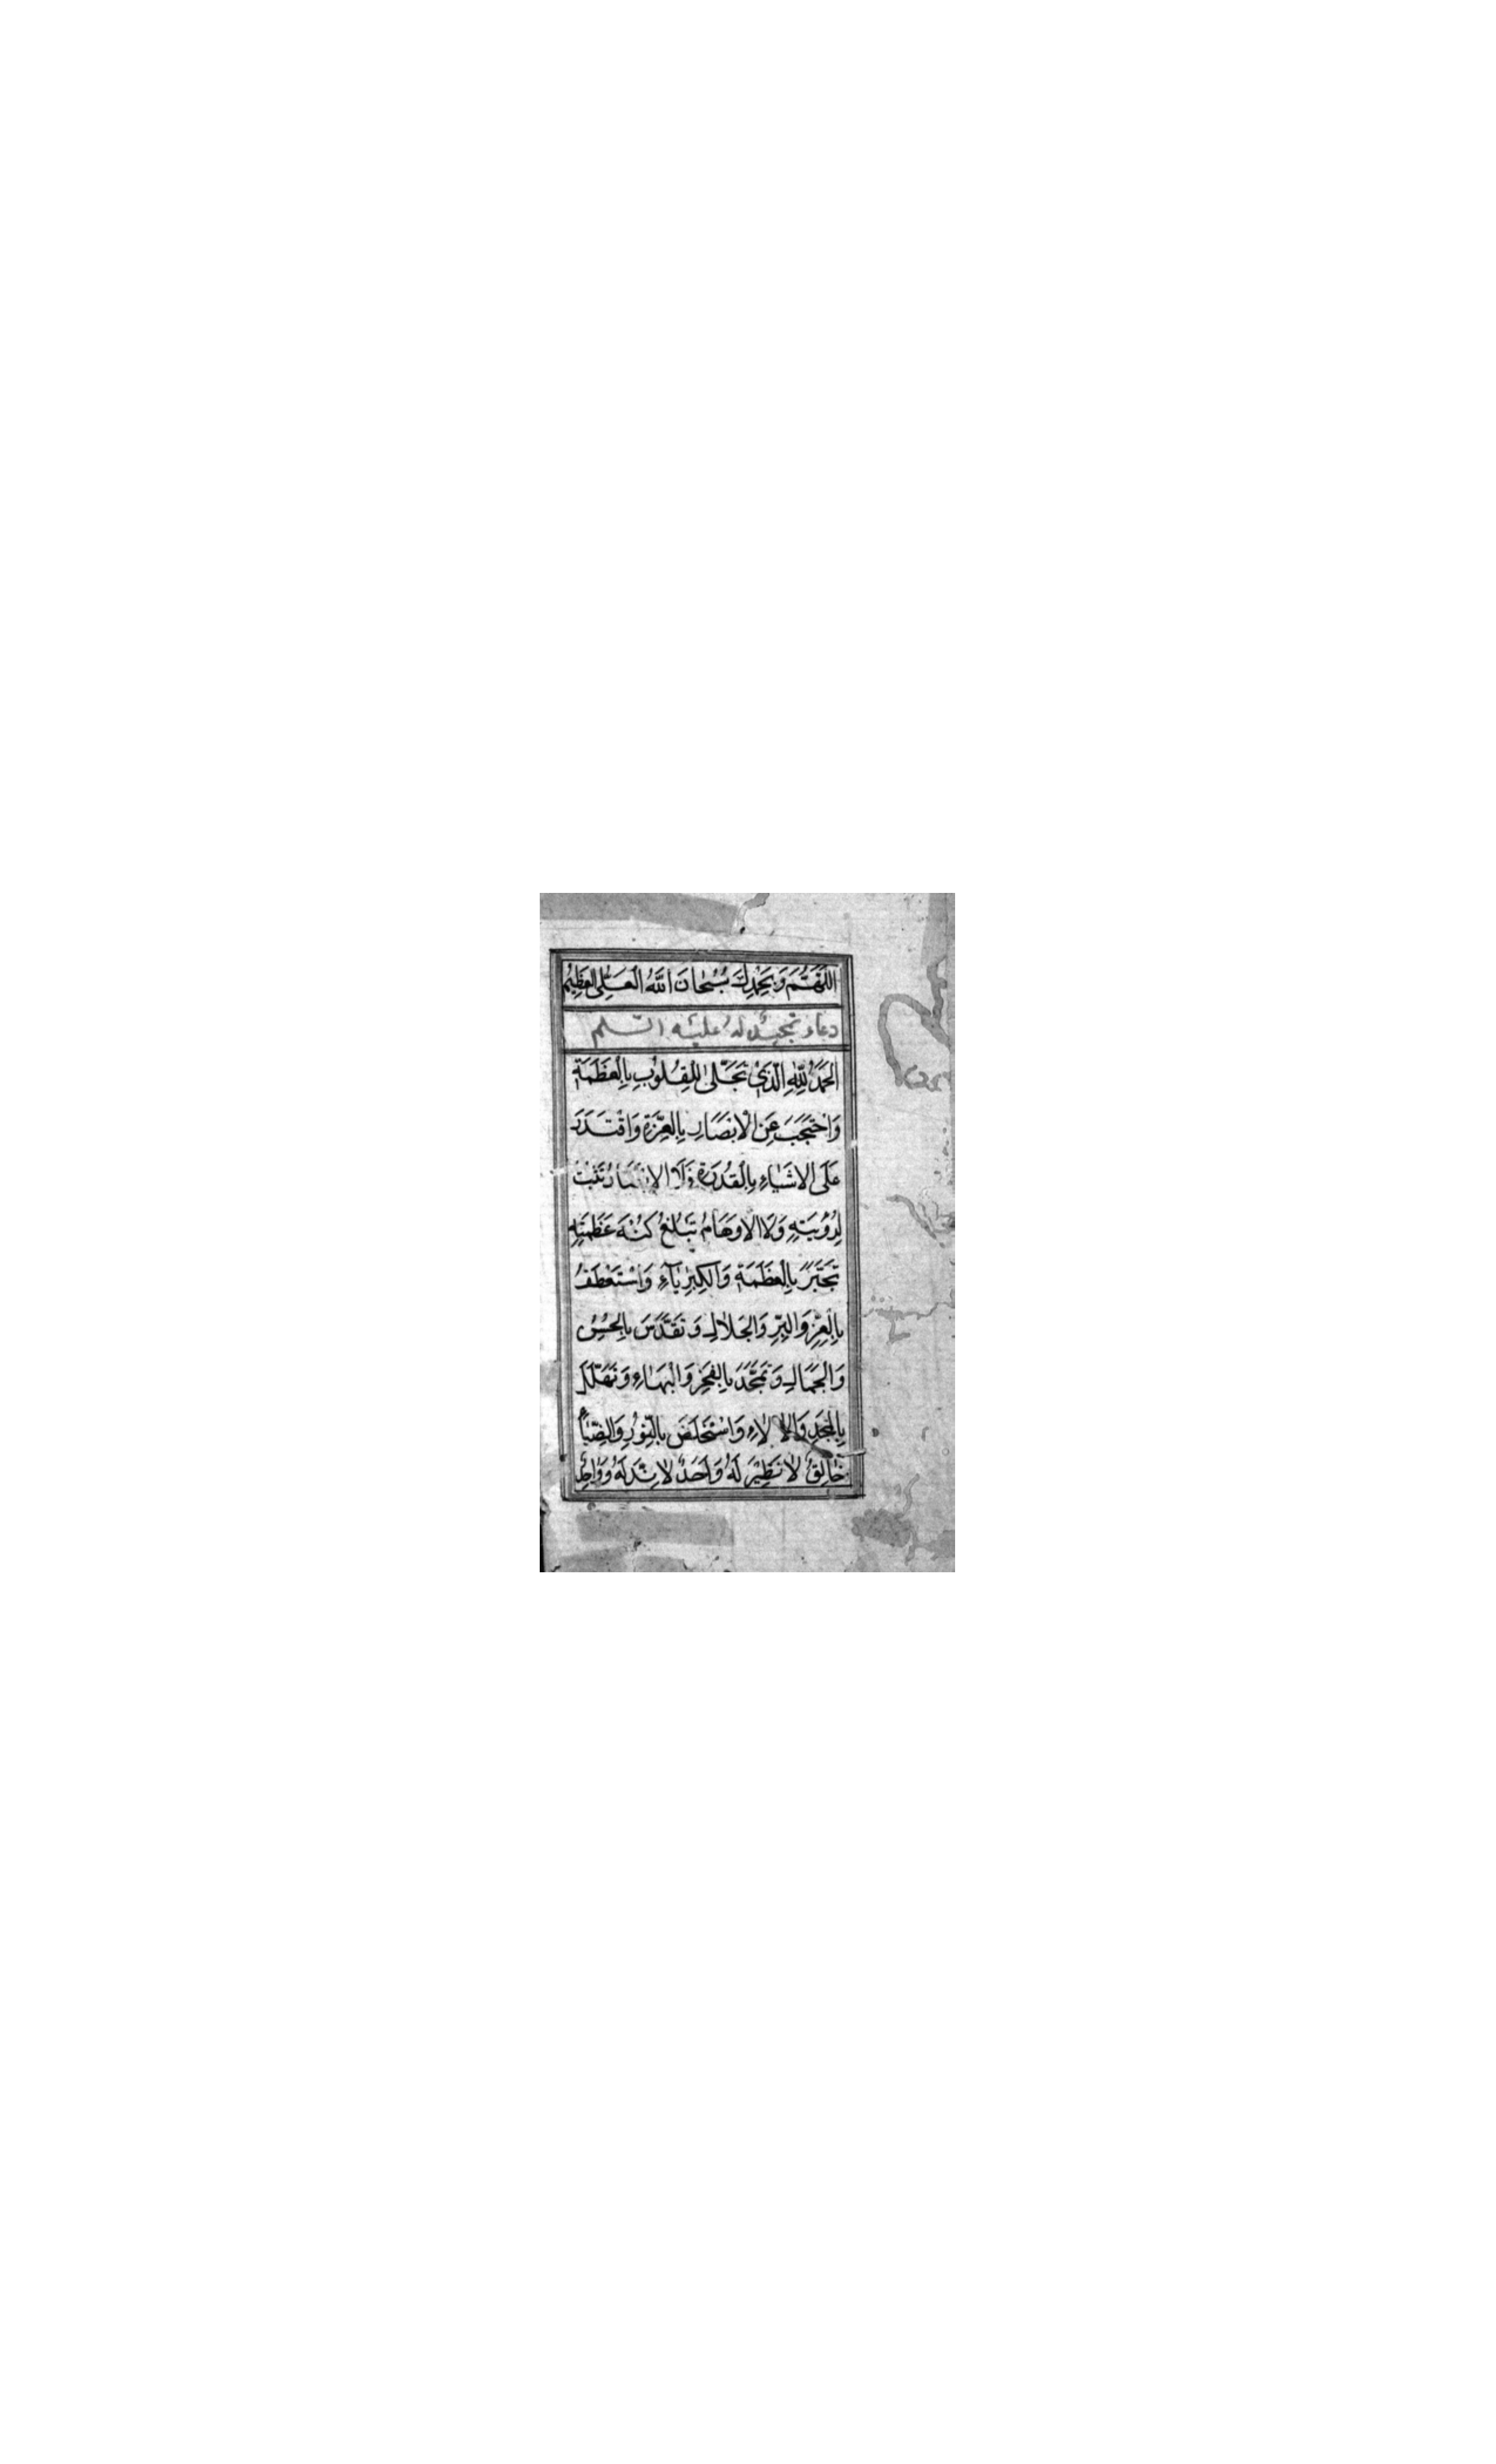 اللَّهُمَّ وَبِحَمْدِكَ سُبْحَانَ اللَّهِ الْعَلِيِّ الْعَظِيمِ
دعاء تمجيد له عليه السلم
الْحَمْدُ لِلَّهِ الَّذِي تَجَلَّى لِلْقُلُوبِ بِالْعَظَمَةِ
وَاحْتَجَبَ عَنِ الْابْصَارِ بِالْعِزَّةِ وَاقْتَدَرَ
عَلَى الْاشْيَاءِ بِالْقُدْرَةِ فَلَا الْابْصَارُ تَثْبُتُ
لِرُؤْيَتِهِ وَلَا الْاوْهَامُ تَبْلُغُ كُنْهَ عَظَمَتِهِ
تَجَبَّرَ بِالْعَظَمَةِ وَالْكِبْرِيَاءِ وَاسْتَعْطَفَ
بِالْعِزِّ وَالْبِرِّ وَالْجَلَالِ وَتَقَدَّسَ بِالْحُسْنِ
وَالْجَمَالِ وَتَمَجَّدَ بِالْفَخْرِ وَالْبَهَاءِ وَتَهَلَّلَ
بِالْمَجْدِ وَالْالَاءِ وَاسْتَخْلَصَ بِالنُّورِ وَالضِّيَاءِ
خَالِقٌ لَا نَظِيرَ لَهُ وَاحَدٌ لَا نِدَّ لَهُ وَوَاحِدٌ